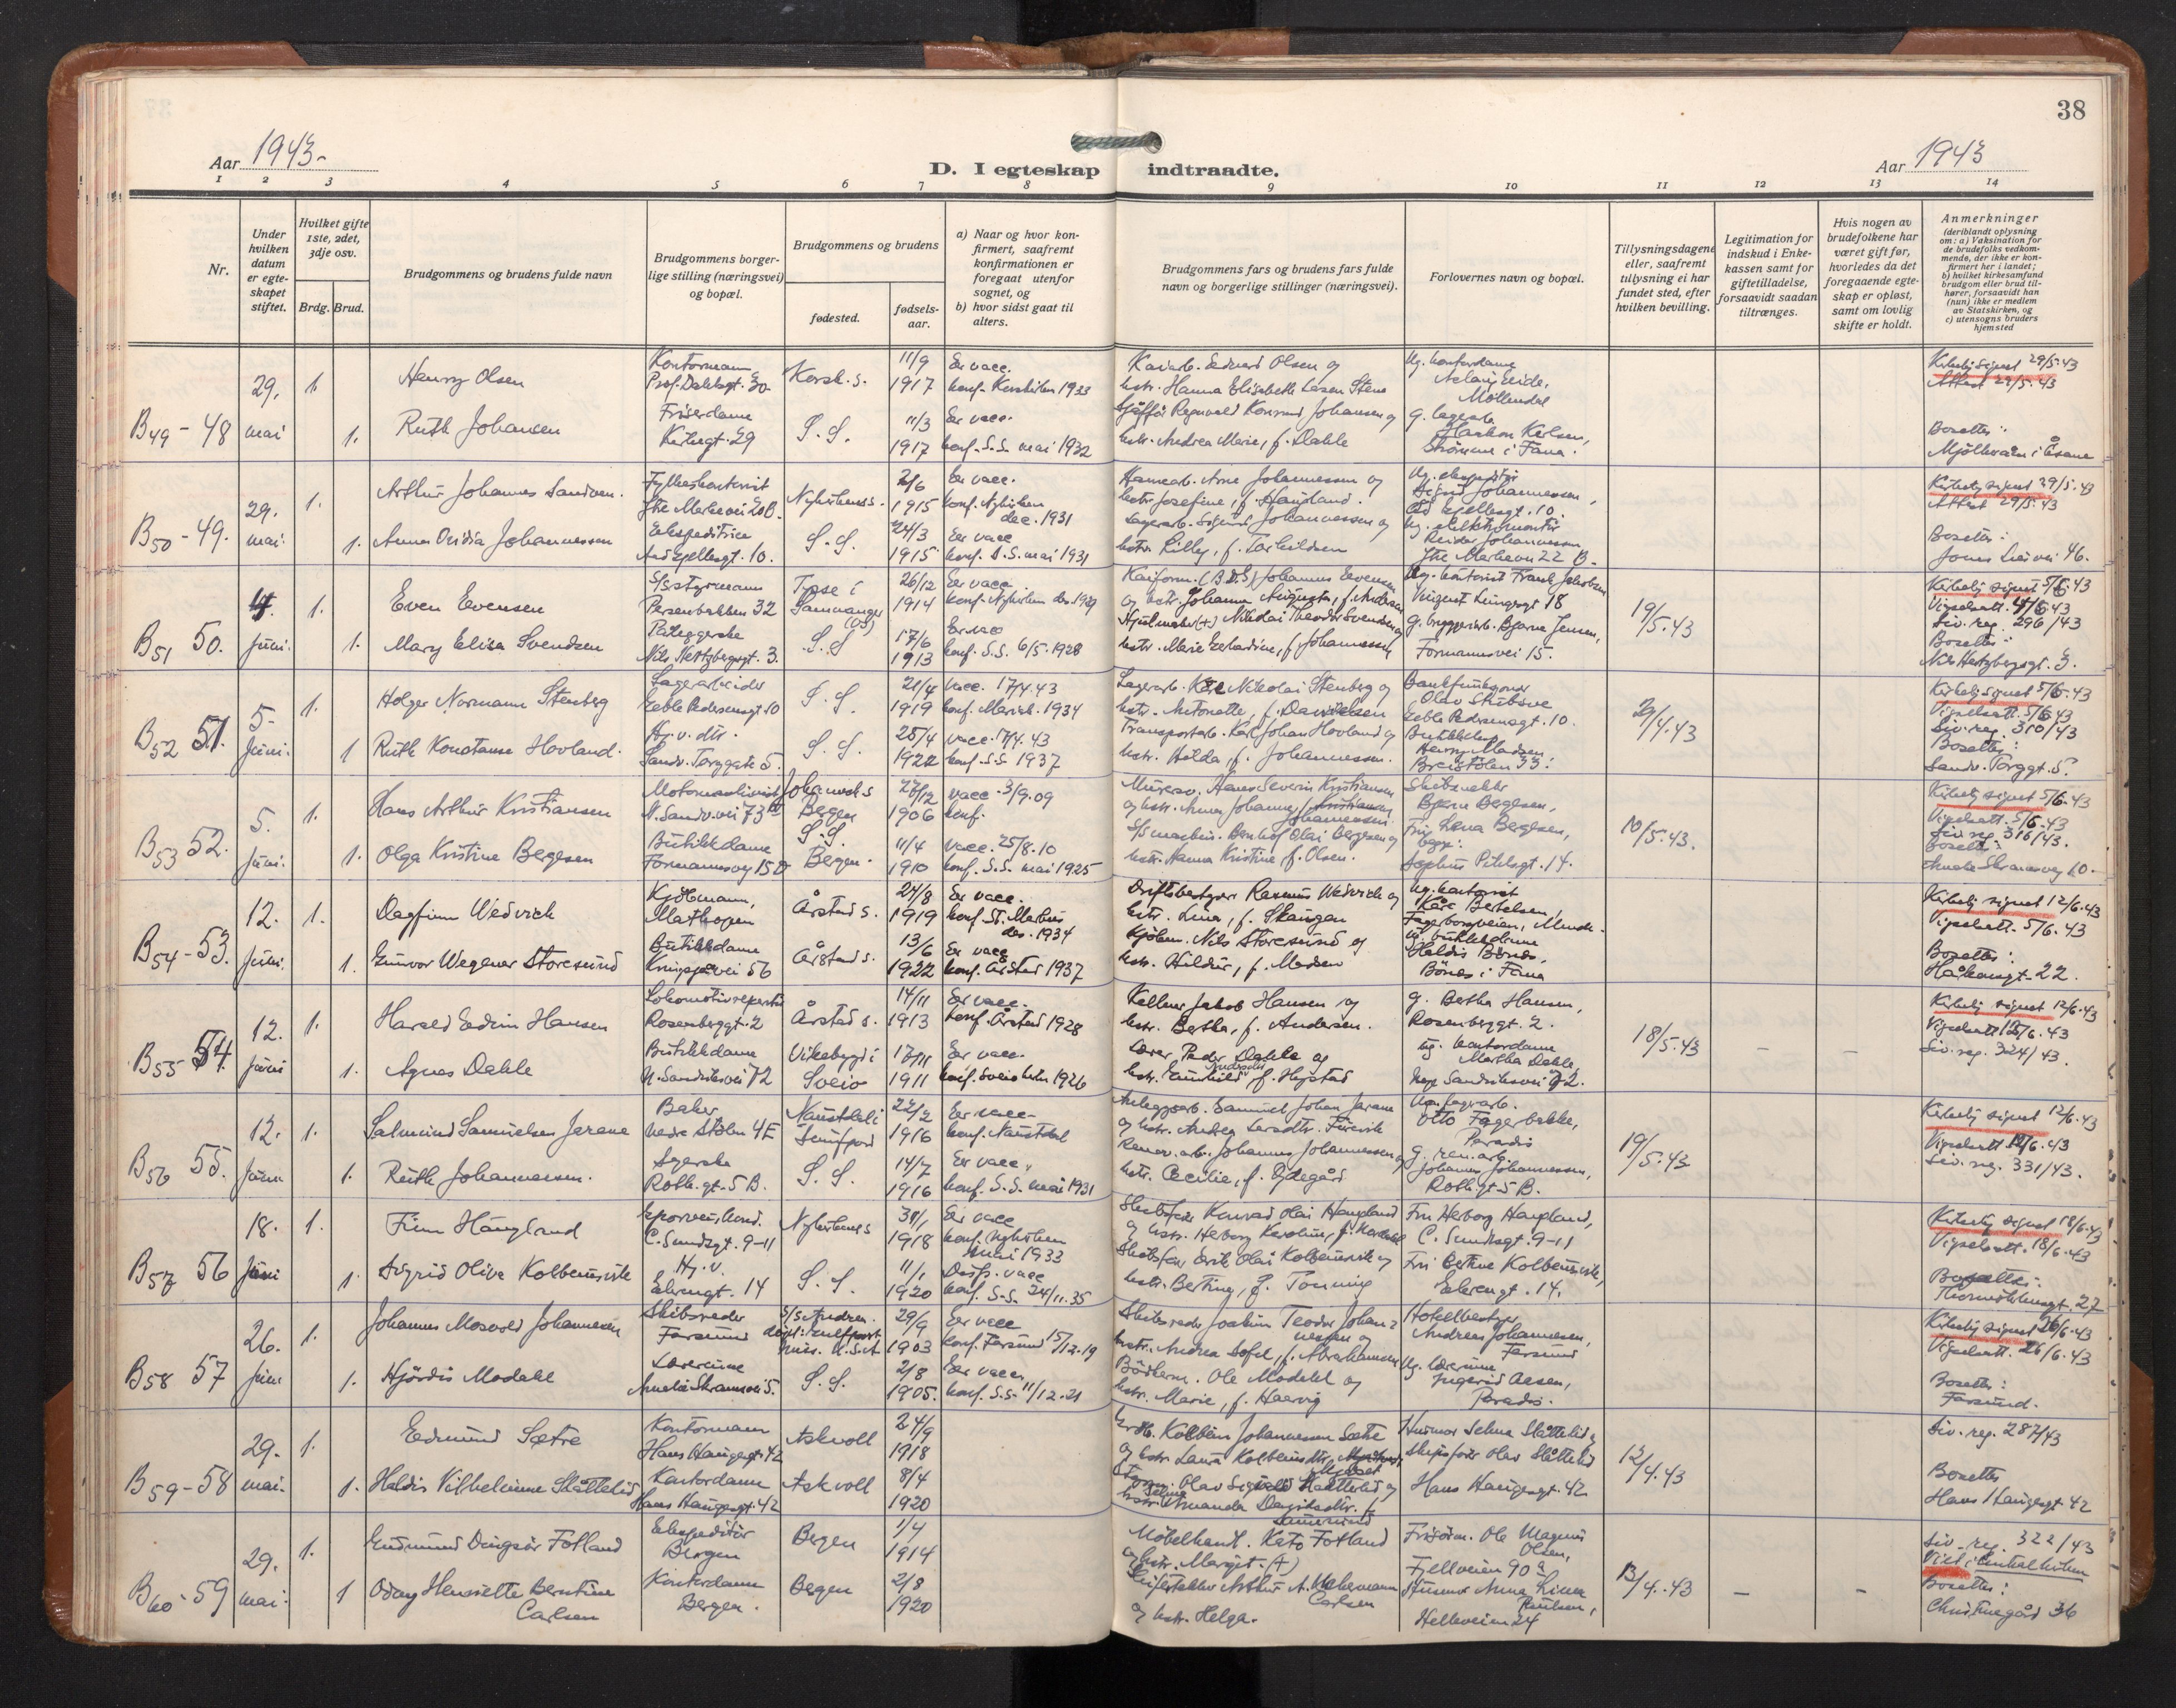 38
Aar 1943-
Aar 1943
D. I egteskap indtraadte.
1 2 3 4 5 6 7 8 9 10 11 12 13 14
Nr.
Under hvilken datum er egteskapet stiftet.
Hvilket gifte 1ste, 2det, 3dje osv.
Brdg. Brud.
Brudgommens og brudens fulde navn
Brudgommens borgerlige stilling (næringsvei) og bopæl.
Brudgommens og brudens
fødested.
fødselsaar.
a) Naar og hvor konfirmert, saafremt konfirmationen er foregaat utenfor sognet, og
b) hvor sidst gaat til alters.
Brudgommens fars og brudens fars fulde navn og borgerlige stillinger (næringsvei).
Forlovernes navn og bopæl.
Tillysningsdagene eller, saafremt tillysning ei har fundet sted, efter hvilken bevilling.
Legitimation for indskud i Enkekassen samt for giftetilladelse, forsaavidt saadan tiltrænges.
Hvis nogen av brudefolkene har været gift før, hvorledes da det foregaaende egteskap er opløst, samt om lovlig skifte er holdt.
Anmerkninger
(deriblandt oplysning om: a) Vaksination for de brudefolks vedkommende, der ikke er konfirmert her i landet;
b) hvilket kirkesamfund brudgom eller brud tilhører, forsaavidt han (hun) ikke er medlem av Statskirken, og
c) utensogns bruders hjemsted
B49-48 29. mai
1. Henry Olsen
Kontormann Prof. Dahlsgt. 30
Korsk. s.
11/9 1917
Er vacc. konf. Korskirken 1933
Kaiarb. Edvard Olsen og hstr. Hanna Elisabeth Larsen Stene
Ug. kontordame
Møllendal
Kirkelig signet 29/5.43
Attest 29/5.43
1. Ruth Johansen
Frisørdame Kirkegt. 29
S.S.
11/3 1917
Er vacc. konf. S.S. mai 1932
Sjåfför Regnvald Konrad Johansen og hstr. Andrea Marie, f. Dahle
g. lagerarb. Haakon Karlsen, Strömme i Fana.
Bosettes: i Åsane
B50-49. 29. mai.
1. Arthur Johannes Sandven.
Fylkeskontorist Ytre Markevei 20B.
Nykirkens s.
2/6 1915
Er vacc. konf. Nykirken dec. 1931
Havnearb. Arne Johannessen og hstr. Josefine, f. Haugland.
Ug. ekspeditør Sigurd Johannessen,
Kirkelig signet 29/5.43
Attest 29/5.43
1. Anna Ovidia Johannessen
Ekspeditrise
S.S.
24/3 1915
Er vacc konf. S.S. mai 1931
Lagerarb. Sigurd Johannessen og hstr. Lilly, f. Torkildsen
Ug. elektromontør Reidar Johannessen Ytre Markevei 22 B.
Bosettes: Jonas Lies vei 46.
B51 50. 4. juni.
1. Even Evensen
S/sstyrmann Persenbakken 32
Tysse i Samnanger (Os)
26/12 1914
Er vacc. konf. Nykirken des. 1929
Kaiform. (B.D.S) Johannes Evensen og hstr. Johanna Augusta, f. Andersen
Ug. kontorist Frank Jakobsen Vincent Lungesgt 18
19/5.43
Kirkelig signet 5/6.43
Vigselsatt. 4/6.43
Siv. reg. 296/43
1. Mary Elise Svendsen
Påleggerske Nils Hertzbergsgt. 3.
S.S
17/6 1913
Er vacc konf. S.S. 6/5.1928
Hjulmaker (+) Nikolai Theodor Svendsen og hstr. Marie Gerhardine, f. Johannessen
g. bryggeriarb. Bjarne Jensen, Formannsvei 15.
Bosettes Nils Hertzbergsgt. 3.
B52 51. 5. juni.
1. Holger Normann Stenberg
Lagerarbeider Geble Pedersensgt. 10
S.S.
21/4 1919
Vacc. 17/4.43 konf. Mariak. 1934
Lagerarb. Kåre Nikolai Stenberg og hstr. Antonette, f. Danielsen
Bankfunksjonær Olav Skibsve Geble Pedersensgt. 10.
29/4.43
Kirkelig signet 5/6.43
Vigselsatt. 5/6.43
Siv. reg. 310/43
1 Ruth Konstanse Hovland.
Hj. v. dir. Sandv. Torggate 5.
S.S.
25/4 1922
vacc. 17/4.43 konf. S.S 1937
Transportarb. Karl Johan Hovland og hstr. Hilda, f. Johannessen.
Henry Madsen Breistølen 33.
Bosettes: Sandv. Torggt. 5.
B53 52. 5. juni.
1. Hans Arthur Kristiansen
N. Sandv. vei 73
Johannesk s Bergen
27/12 1906
vacc. 3/9.09 konf.
Murersv. Hans Severin Kristiansen og hstr. Anna Johanne, f. Johannessen.
Bjarne Bergesen,
10/5.43.
Kirkelig signet 5/6.43
Vigselsatt. 5/6.43
Siv. reg. 316/43.
1. Olga Kristine Bergesen
Butikkdame Formannsvei 15 D
S.S. Bergen.
11/4 1910
vacc. 25/8.10 konf. S.S. mai 1925
S/s maskin. Bernhof Olai Bergesen og hstr. Hanna Kristine f. Olsen.
Fru Lena Bergesen, begge: Sophus Pihlsgt. 14.
Bosettes: Amalie Skramsvei 10.
B54-53. 12. juni.
1. Dagfinn Wedvich
Kjöbmann, Mathopen
Årstad s.
24/8 1919
Er vacc. konf. St. Markus des. 1934
Driftsbestyrer Rasmus Wedvich og hstr. Lina, f. Skaugen
Ug. kontorist Kåre Bertelsen, Fagerborgveien, Minde.
Kirkelig signet 12/6.43
Vigselsatt. 5/6.43
1. Gunvor Wegener Storesund
Butikkdame Kringsjåvei 56
Årstad s.
13/6 1922
Er vacc konf. Årstad 1937
Kjöbm. Nils Storesund og hstr. Hildur, f. Madsen
ug. butikkdame Haldis Bönes, Bönes i Fana
Bosettes: Håkonsgt. 22.
B55-54. 12. juni
1. Harald Edvin Hansen
Lokomotivreparatør Rosenberggt. 2
Årstad s.
14/11 1913
Er vacc. konf. Årstad 1928
Kellner Jakob Hansen og hstr. Bertha, f. Andersen.
g. Bertha Hansen, Rosenberggt. 2.
18/5.43
Kirkelig signet 12/6.43
Vigselsatt 12/6.43
Siv. reg. 324/43.
1. Agnes Dahle
Butikkdame N. Sandviksvei 72
Vikebygd i Sveio
17/11 1911
Er vacc. konf. Sveio 1926
Lærer Peder Dahle og hstr. Gunhild f. Hystad
ug. kontordame Martha Dahle, Nye Sandviksvei 72.
B56 55. 12. juni
1. Salmund Samuelsen Jerane
Baker Nedre Stölen 4E
Naustdal i Sunnfjord
22/2 1916
Er vacc. konf. Naustdal
Anleggsarb. Samuel Johan Jerane og hstr. Andrea Larsdtr. Furevik
Ug. fagarb. Otto Fagerbakke, Paradis
19/5.43
Kirkelig signet 12/6.43
Vigselsatt 12/6.43
Siv. reg. 331/43.
1. Ruth Johannessen.
Syerske Rothsgt. 5 B.
S.S.
14/7 1916
Er vacc. konf. S.S. mai 1931
Renov. arb. Johannes Johannessen og hstr. Cecilie, f. Ødegård
g. ren. arb. Johannes Johannessen, Rothsgt 5 B.
B57 56 18. juni
1. Finn Haugland
Sporveiskond. C. Sundtsgt. 9-11
Nykirkens s
31/1 1918
Er vacc konf. Nykirken mai 1933
Skibsfør. Konrad Olai Haugland og hstr. Herborg Karoline, f.
Fru Herborg Haugland, C. Sundtsgt. 9-11
Kirkelig signet 18/6.43
Vigselsatt. 18/6.43
1 Sigrid Olive Kolbeinsvik
Hj. v.
S.S.
11/1 1920
Disp. vacc konf. S.S. 24/11.35
Skibsfør Erik Olai Kolbeinsvik og hstr. Bertine, f. Tonning
Fru Bertine Kolbeinsvik,
Bosettes: Thormøhlensgt. 27
B58 57 26. juni
1. Johannes Mosvold Johannessen
Skibsreder Farsund
29/9 1903
Er vacc konf. Farsund 15/12.19
Skibsreder Joakim Teodor Johannessen og hstr. Andrea Sofie, f. Abrahamsen
Hotellbestyr. Andreas Johannessen, Farsund
Kirkelig signet 26/6.43
Vigselsatt. 26/6.43
1. Hjördis Modahl
Lærerinne Amalie Skramsvei 5.
S.S.
2/8 1905.
Er vacc. konf. S.S. 11/12.21
Bödkerm. Ole Modahl og hstr. Marie, f. Haavig
Ug. lærerinne Ingerid Aasen, Paradis.
Bosettes: Farsund.
B59-58 29. mai.
1. Edmund Sætre
Kontormann Hans Haugesgt. 42
Askvoll
24/9 1918
Kolbein Johannessen Sætre og hstr. Laura Kolbeinsdtr.
Husmor Selma Slåttelid,
skipsfører Olav Slåttelid
Hans Haugesgt. 42
13/4.43
Siv. reg. 287/43
1. Haldis Vilhelmine Slåttelid
Kontordame Hans Haugesgt. 42
Askvoll
8/4 1920
Olav Sigvald Slåttelid og hstr. Amanda
Bosettes Hans Haugesgt 42
B60-59 29. mai.
1. Gudmund Dingsør Fotland
Ekspeditør Bergen
Bergen
1/4 1914
Møbelhandl. Kato Fotland og hstr. Margit. (+)
Frisörm. Ole Magnus Olsen, Fjellveien 90 a
13/4.43
Siv. reg. 322/43
Viet i Centralkirken
1 Oday Henriette Berntine Carlsen
Kontordame Bergen.
Bergen
2/8 1920
Arthur A. Carlsen og hstr. Helga.
Husmor Anna Lina Paulsen, Helleveien 24
Bosettes: Christinegård 36